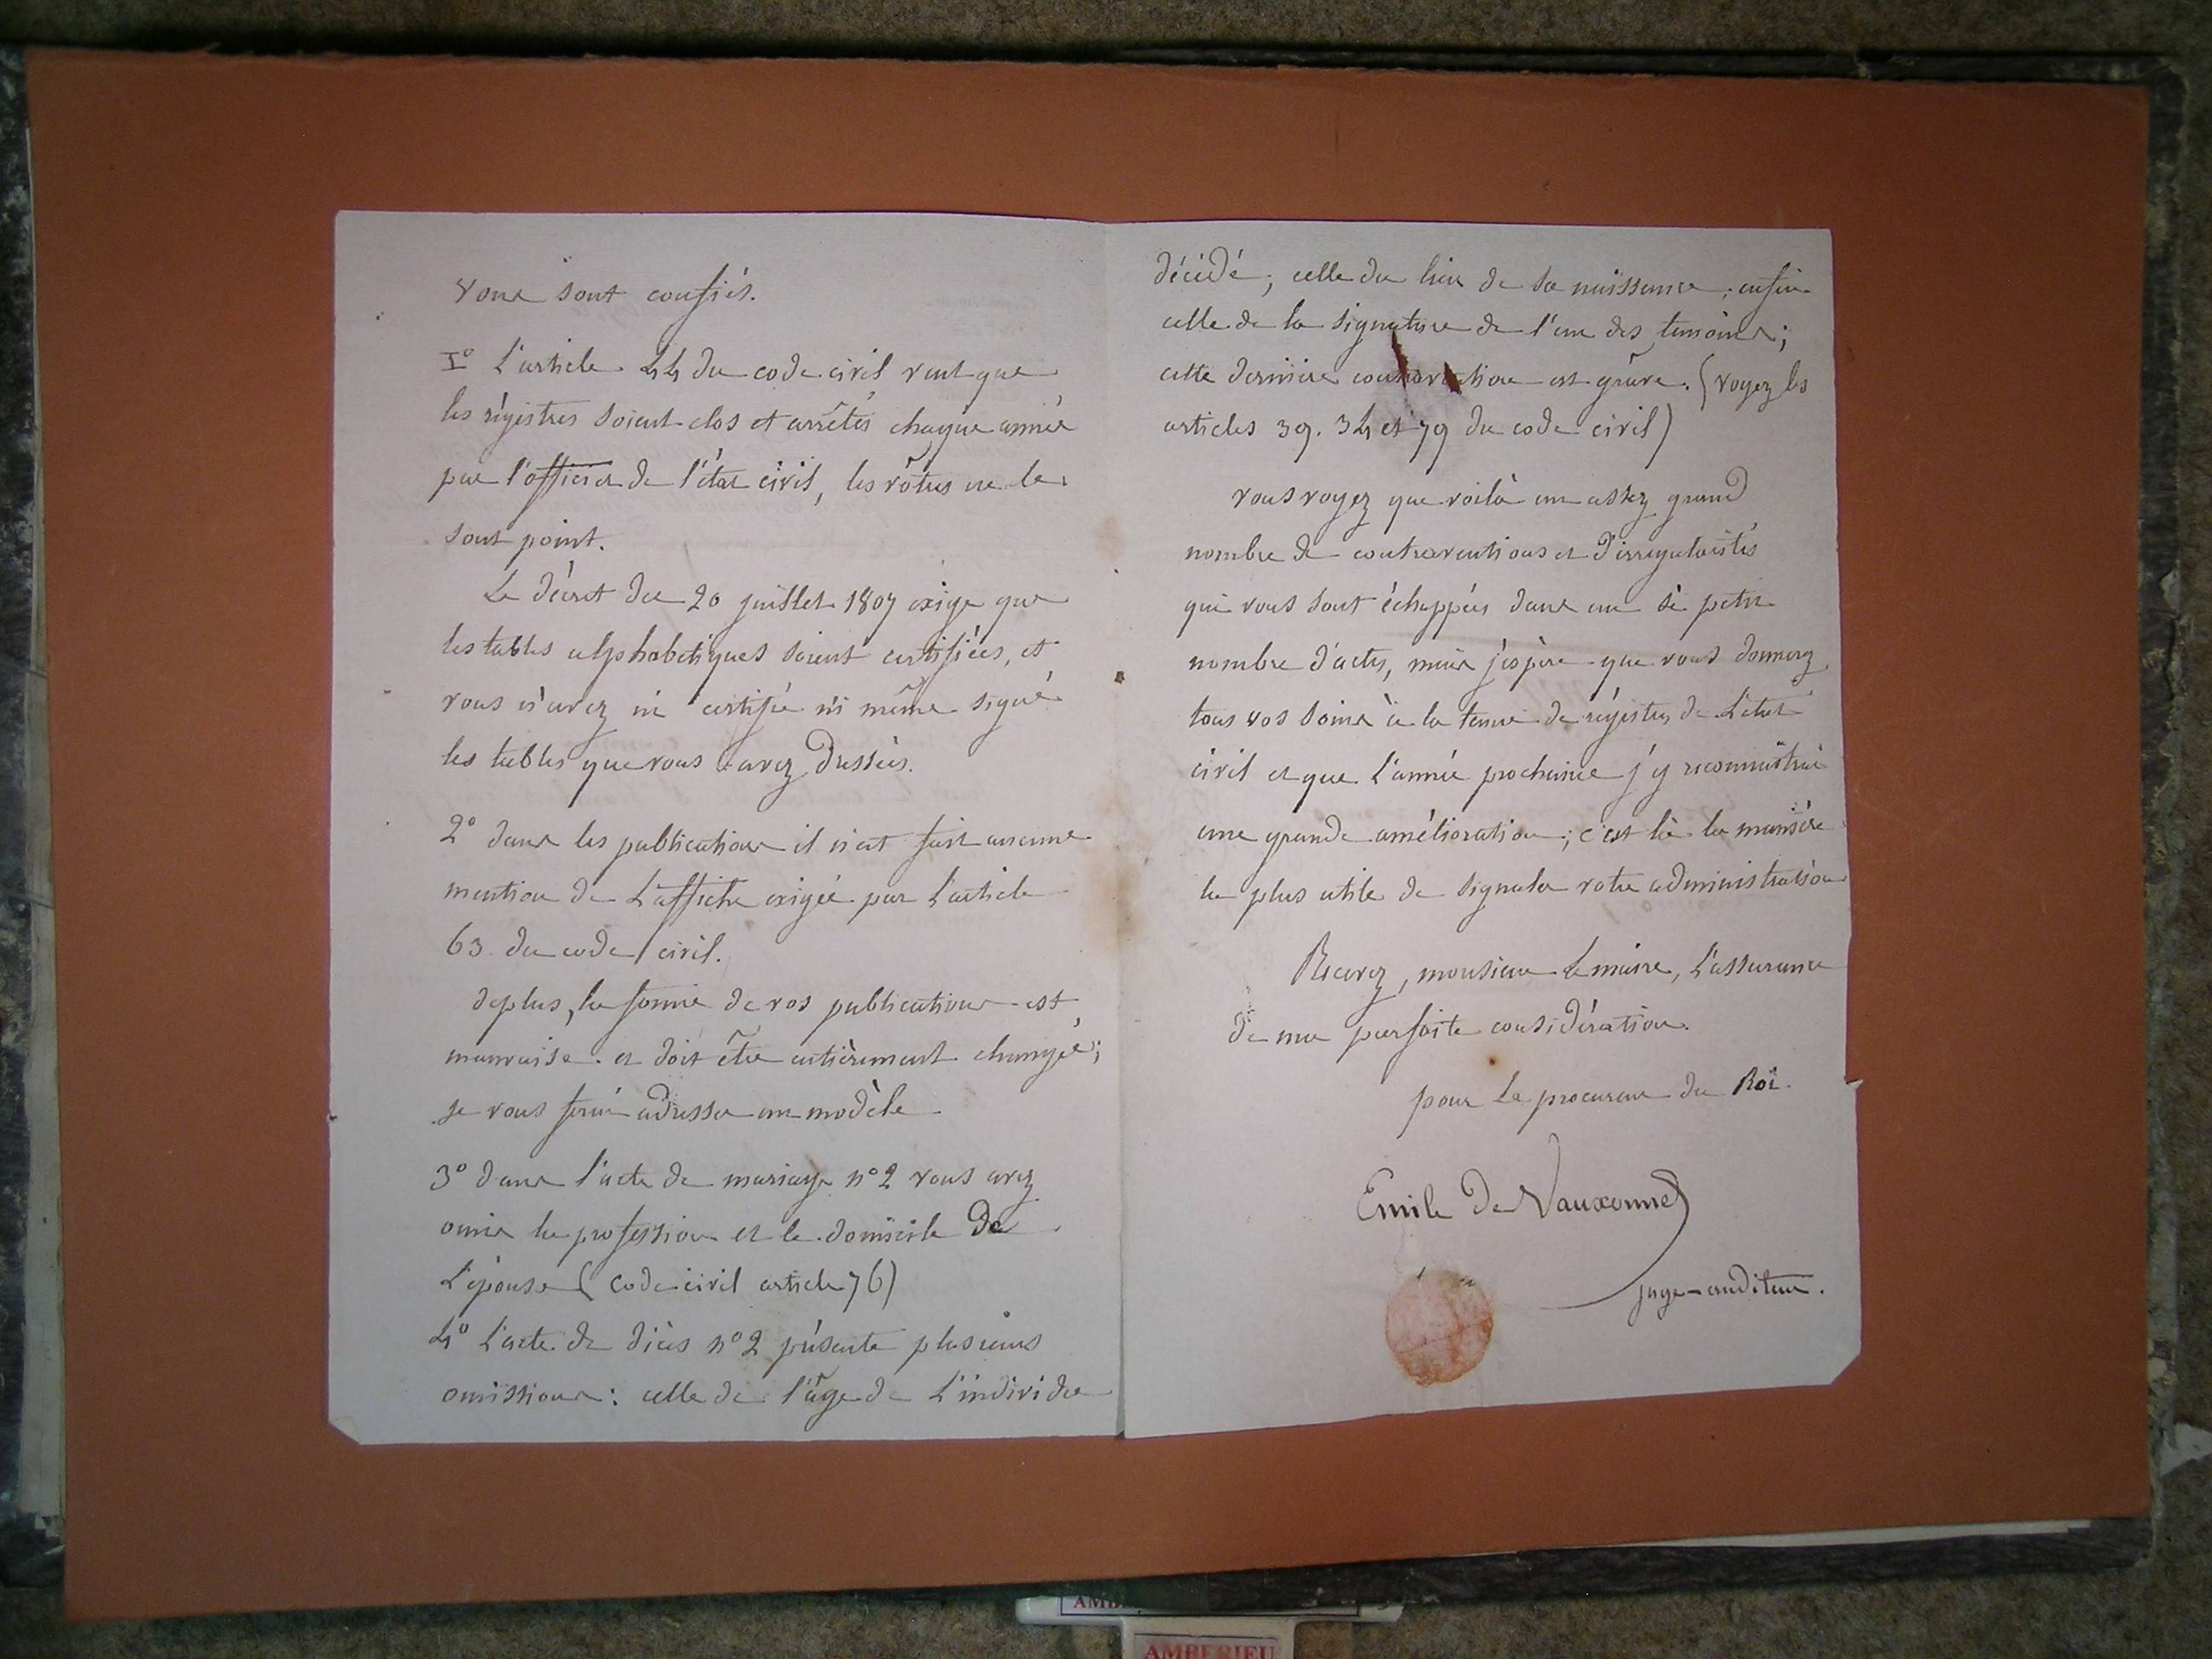 vous sont confiés.
1º L'article 44 du code civil veut que
les régistres soient clos et arrêtés chaque année
par l'officier de l'état civil, les vôtres ne le
sont point.
Le décret du 20 juillet 1807 exige que
les tables alphabétiques soient certifiées, et
vous n'avez ni certifié ni même signé
les tables que vous avez dressées.
2º dans les publications il n'est fait aucune
mention de L'affiche exigée par L'article
63 du code civil.
de plus, la forme de vos publications est
mauvaise et doit être entièrement changée;
je vous ferai adresser un modèle
3º dans l'acte de mariage nº 2 vous avez
omis la profession et le domicile de
L'épouse (code civil article 76)
4º L'acte de décès nº 2 présente plusieurs
omissions: celle de l'âge de L'individu
décédé; celle du lieu de sa naissance; enfin
celle de la signature de l'un des temoins;
cette dernière contravention est grâve. (voyez les
articles 39. 34 et 79 du code civil)
vous voyez que voilà un assez grand
nombre de contraventions et d'irregularités
qui vous sont échappées dans un si petit
nombre d'actes, mais j'espère que vous donnerez
tous vos soins à la tenue de régistres de L'état
civil et que L'année prochaine j'y reconnaîtrai
une grande amélioration; c'est là la manière
la plus utile de signaler votre administration
Recevez, monsieur Le maire, L'assurance
de ma parfaite considération.
pour Le procureur du Roi
Emile De Vauxonne
juge-auditeur.
AMBERIEU